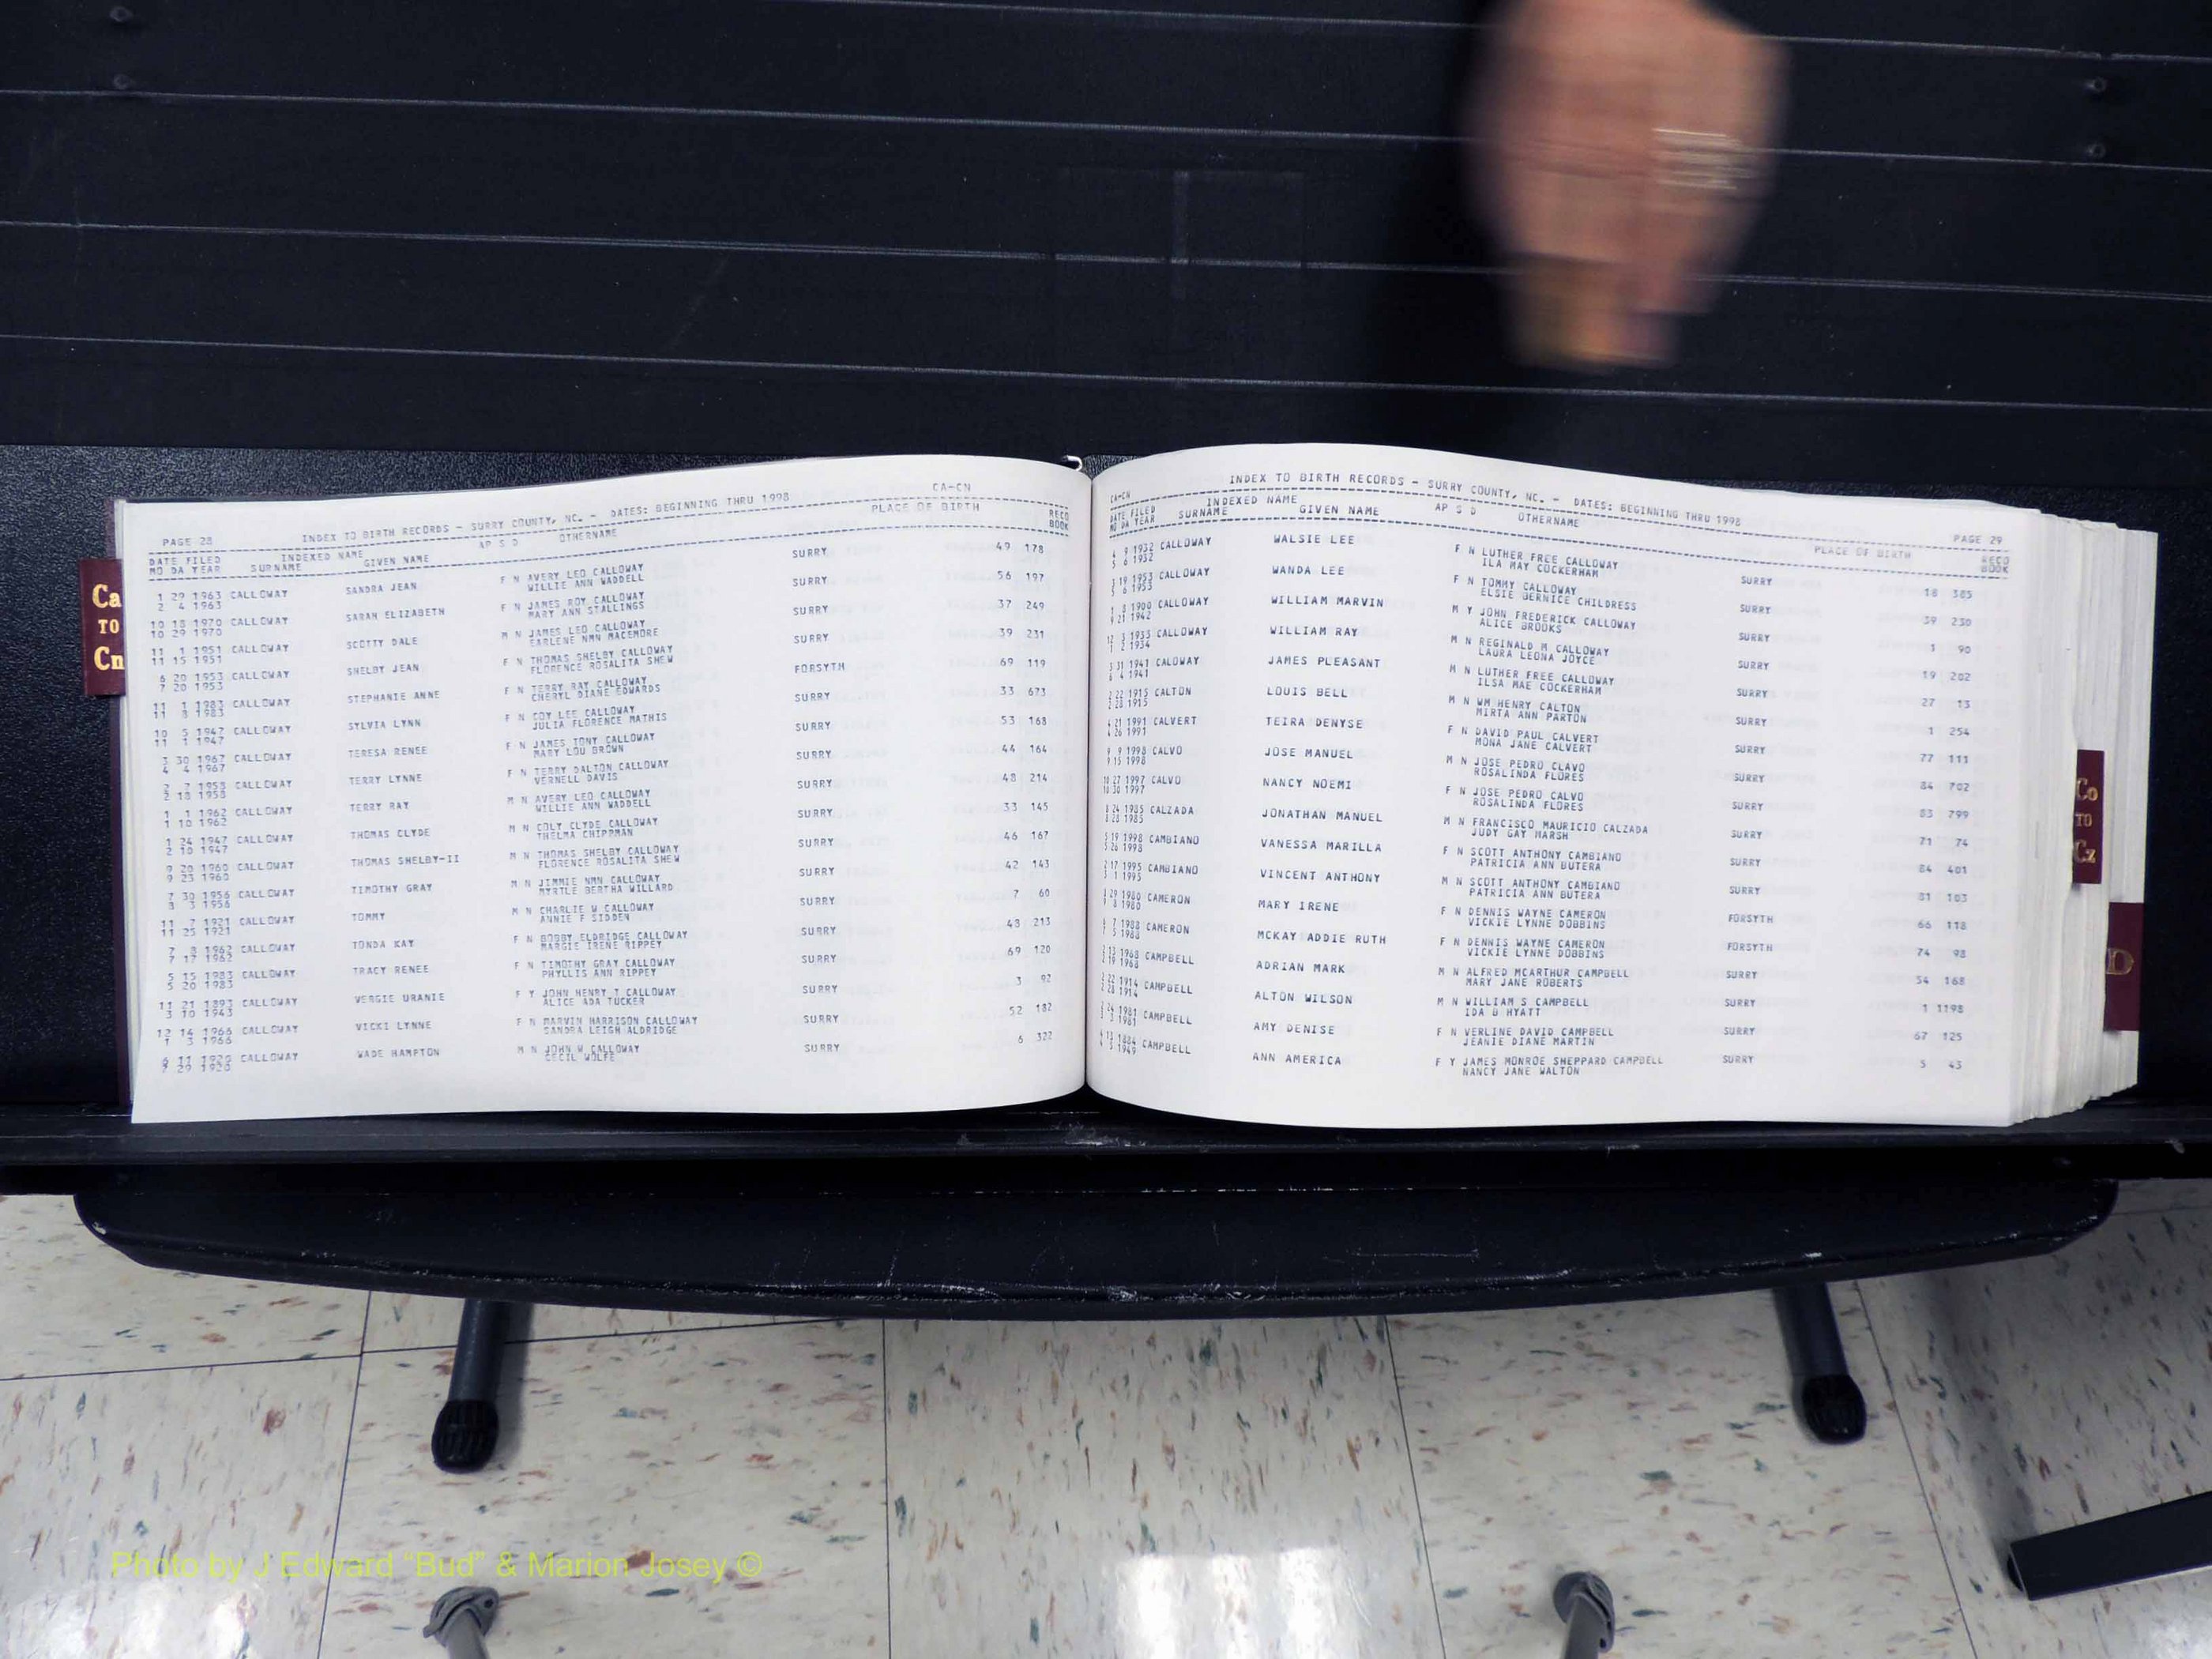 CA-CN
PAGE 28 INDEX TO BIRTH RECORDS - SURRY COUNTY, NC. - DATES: BEGINNING THRU 1998
DATE FILED INDEXED NAME AP S D OTHERNAME PLACE OF BIRTH RECO
MO DA YEAR SURNAME GIVEN NAME BOOK
1 29 1963 CALLOWAY SANDRA JEAN F N AVERY LEO CALLOWAY SURRY 49 178
2 4 1963 WILLIE ANN WADDELL
10 18 1970 CALLOWAY SARAH ELIZABETH F N JAMES ROY CALLOWAY SURRY 56 197
10 29 1970 MARY ANN STALLINGS
11 1 1951 CALLOWAY SCOTTY DALE M N JAMES LEO CALLOWAY SURRY 37 249
11 15 1951 EARLENE NMN MACEMORE
6 20 1953 CALLOWAY SHELBY JEAN F N THOMAS SHELBY CALLOWAY SURRY 39 231
7 20 1953 FLORENCE ROSALITA SHEW
11 1 1983 CALLOWAY STEPHANIE ANNE F N TERRY RAY CALLOWAY FORSYTH 69 119
11 8 1983 CHERYL DIANE EDWARDS
10 5 1947 CALLOWAY SYLVIA LYNN F N COY LEE CALLOWAY SURRY 33 673
11 1 1947 JULIA FLORENCE MATHIS
3 30 1967 CALLOWAY TERESA RENEE F N JAMES TONY CALLOWAY SURRY 53 168
4 4 1967 MARY LOU BROWN
2 7 1958 CALLOWAY TERRY LYNNE F N TERRY DALTON CALLOWAY SURRY 44 164
2 18 1958 VERNELL DAVIS
1 1 1962 CALLOWAY TERRY RAY M N AVERY LEO CALLOWAY SURRY 48 214
1 10 1962 WILLIE ANN WADDELL
1 24 1947 CALLOWAY THOMAS CLYDE M N COLY CLYDE CALLOWAY SURRY 33 145
2 10 1947 THELMA CHIPPMAN
9 20 1960 CALLOWAY THOMAS SHELBY-II M N THOMAS SHELBY CALLOWAY SURRY 46 167
9 23 1960 FLORENCE ROSALITA SHEW
7 30 1956 CALLOWAY TIMOTHY GRAY M N JIMMIE NMN CALLOWAY SURRY 42 143
8 3 1956 MYRTLE BERTHA WILLARD
11 7 1921 CALLOWAY TOMMY M N CHARLIE W CALLOWAY SURRY 7 60
11 25 1921 ANNIE F SIDDEN
7 8 1962 CALLOWAY TONDA KAY F N BOBBY ELDRIDGE CALLOWAY SURRY 48 213
7 17 1962 MARGIE IRENE RIPPEY
5 15 1983 CALLOWAY TRACY RENEE F N TIMOTHY GRAY CALLOWAY SURRY 69 120
5 20 1983 PHYLLIS ANN RIPPEY
11 21 1893 CALLOWAY VERGIE URANIE F Y JOHN HENRY T CALLOWAY SURRY 3 92
3 10 1943 ALICE ADA TUCKER
12 14 1966 CALLOWAY VICKI LYNNE F N MARVIN HARRISON CALLOWAY SURRY 52 182
1 3 1966 SANDRA LEIGH ALDRIDGE
6 11 1920 CALLOWAY WADE HAMPTON M N JOHN W CALLOWAY SURRY 6 322
7 29 1920 CECIL WOLFE
Ca
TO
Cn
CA-CN INDEX TO BIRTH RECORDS - SURRY COUNTY, NC. - DATES: BEGINNING THRU 1998 PAGE 29
DATE FILED INDEXED NAME AP S D OTHERNAME PLACE OF BIRTH RECO
MO DA YEAR SURNAME GIVEN NAME BOOK
4 9 1932 CALLOWAY WALSIE LEE F N LUTHER FREE CALLOWAY SURRY 18 385
5 6 1952 ILA MAY COCKERHAM
3 19 1953 CALLOWAY WANDA LEE F N TOMMY CALLOWAY SURRY 39 230
5 6 1953 ELSIE BERNICE CHILDRESS
1 8 1900 CALLOWAY WILLIAM MARVIN M Y JOHN FREDERICK CALLOWAY SURRY 1 90
9 21 1942 ALICE BROOKS
12 3 1933 CALLOWAY WILLIAM RAY M N REGINALD M CALLOWAY SURRY 19 202
1 2 1934 LAURA LEONA JOYCE
3 31 1941 CALOWAY JAMES PLEASANT M N LUTHER FREE CALLOWAY SURRY 27 13
6 4 1941 ILSA MAE COCKERHAM
2 22 1915 CALTON LOUIS BELL M N WM HENRY CALTON SURRY 1 254
2 28 1915 MIRTA ANN PARTON
4 21 1991 CALVERT TEIRA DENYSE F N DAVID PAUL CALVERT SURRY 77 111
4 26 1991 MONA JANE CALVERT
9 9 1998 CALVO JOSE MANUEL M N JOSE PEDRO CLAVO SURRY 84 702
9 15 1998 ROSALINDA FLORES
10 27 1997 CALVO NANCY NOEMI F N JOSE PEDRO CALVO SURRY 83 799
10 30 1997 ROSALINDA FLORES
8 24 1985 CALZADA JONATHAN MANUEL M N FRANCISCO MAURICIO CALZADA SURRY 71 74
8 28 1985 JUDY GAY MARSH
5 19 1998 CAMBIANO VANESSA MARILLA F N SCOTT ANTHONY CAMBIANO SURRY 84 401
5 26 1998 PATRICIA ANN BUTERA
2 17 1995 CAMBIANO VINCENT ANTHONY M N SCOTT ANTHONY CAMBIANO SURRY 81 103
3 1 1995 PATRICIA ANN BUTERA
29 1980 CAMERON MARY IRENE F N DENNIS WAYNE CAMERON FORSYTH 66 118
9 8 1980 VICKIE LYNNE DOBBINS
7 1988 CAMERON MCKAY ADDIE RUTH F N DENNIS WAYNE CAMERON FORSYTH 74 98
5 1988 VICKIE LYNNE DOBBINS
2 13 1968 CAMPBELL ADRIAN MARK M N ALFRED MCARTHUR CAMPBELL SURRY 54 168
2 19 1968 MARY JANE ROBERTS
2 22 1914 CAMPBELL ALTON WILSON M N WILLIAM S CAMPBELL SURRY 1 1198
2 28 1914 IDA B HYATT
2 24 1981 CAMPBELL AMY DENISE F N VERLINE DAVID CAMPBELL SURRY 67 125
3 3 1981 JEANIE DIANE MARTIN
13 1884 CAMPBELL ANN AMERICA F Y JAMES MONROE SHEPPARD CAMPBELL SURRY 5 43
5 1949 NANCY JANE WALTON
Co
TO
Cz
D
Photo by J Edward “Bud” & Marion Josey ©